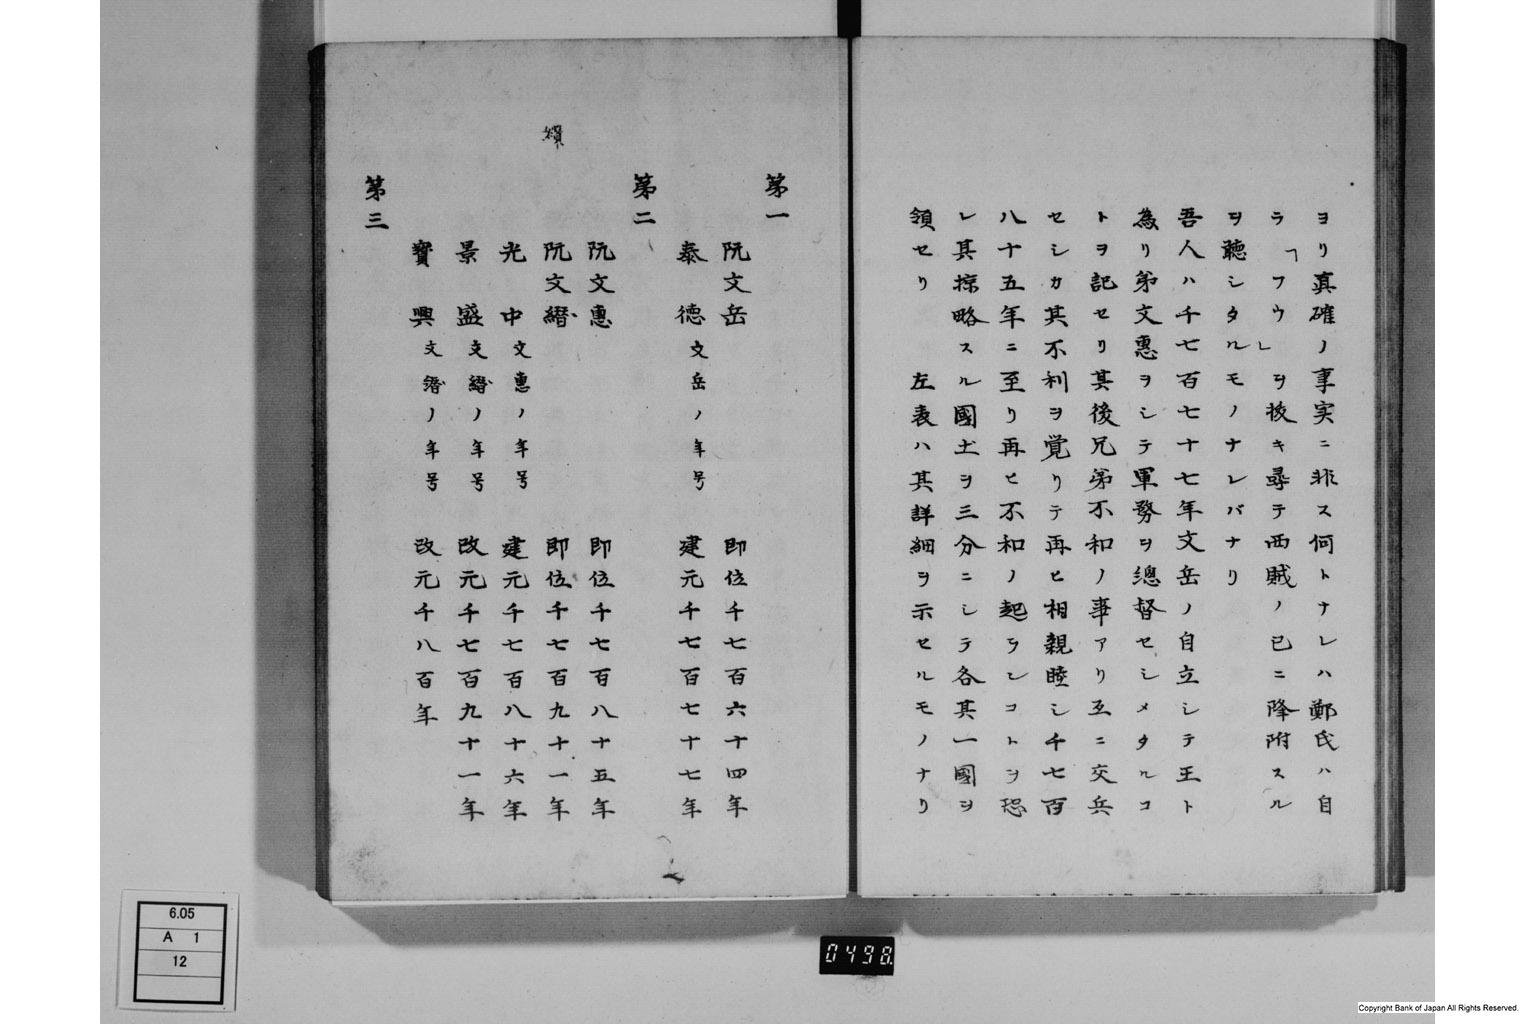 ヨリ真確ノ事実ニ非ス何トナレハ鄭氏ハ自
ラ「フウ」ヲ抜キ尋テ西賊ノ已ニ降附スル
ヲ聴シタルモノナレバナリ
吾人ハ千七百七十七年文岳ノ自立シテ王ト
為リ第文惠ヲシテ軍務ヲ總督セシメタルコ
トヲ記セリ其後兄弟不和ノ事アリ互ニ交兵
セシカ其不利ヲ覚リテ再ヒ相親睦シ千七百
八十五年ニ至リ再ヒ不和ノ起ランコトヲ恐
レ其掠略スル國土ヲ三分ニシテ各其一國ヲ
領セリ 左表ハ其詳細ヲ示セルモノナリ
第一
阮文岳 即位千七百六十四年
泰德 文岳ノ年号 建元千七百七十七年
第二
阮文惠 即位千七百八十五年
阮文纘 即位千七百九十一年
纘
光中 文惠ノ年号 建元千七百八十六年
景盛 文纘ノ年号 改元千七百九十一年
寶興 文纘ノ年号 改元千八百年
第三
6.05
A 1
12
0498
Copyright Bank of Japan All Rights Reserved.